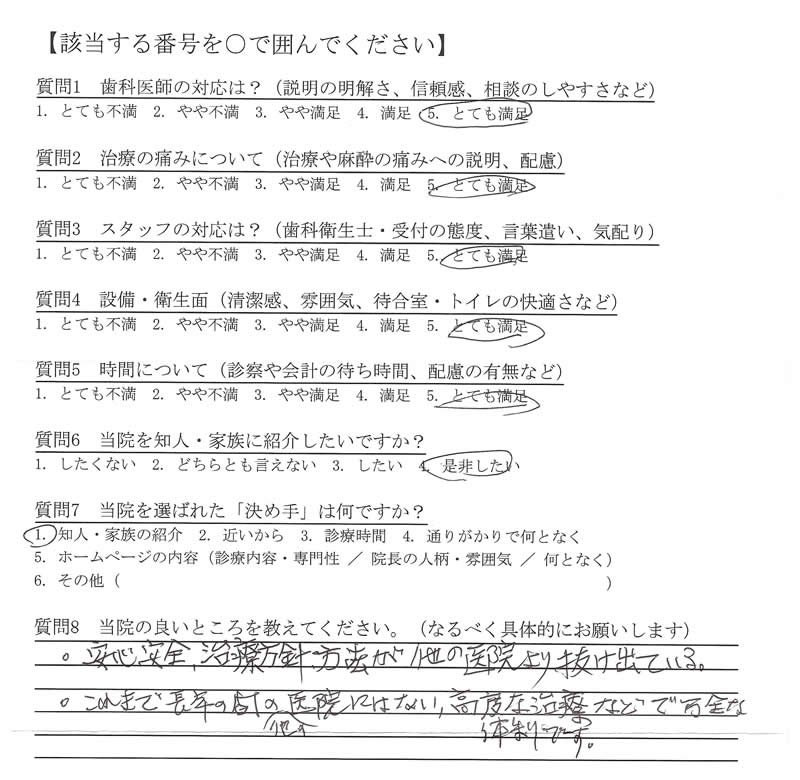 【該当する番号を○で囲んでください】
質問1 歯科医師の対応は？（説明の明解さ、信頼感、相談のしやすさなど）
1. とても不満 2. やや不満 3. やや満足 4. 満足 5. とても満足
質問2 治療の痛みについて（治療や麻酔の痛みへの説明、配慮）
1. とても不満 2. やや不満 3. やや満足 4. 満足 5. とても満足
質問3 スタッフの対応は？（歯科衛生士・受付の態度、言葉遣い、気配り）
1. とても不満 2. やや不満 3. やや満足 4. 満足 5. とても満足
質問4 設備・衛生面（清潔感、雰囲気、待合室・トイレの快適さなど）
1. とても不満 2. やや不満 3. やや満足 4. 満足 5. とても満足
質問5 時間について（診察や会計の待ち時間、配慮の有無など）
1. とても不満 2. やや不満 3. やや満足 4. 満足 5. とても満足
質問6 当院を知人・家族に紹介したいですか？
1. したくない 2. どちらとも言えない 3. したい 4. 是非したい
質問7 当院を選ばれた「決め手」は何ですか？
1. 知人・家族の紹介 2. 近いから 3. 診療時間 4. 通りがかりで何となく
5. ホームページの内容（診療内容・専門性 ／ 院長の人柄・雰囲気 ／ 何となく）
6. その他（ ）
質問8 当院の良いところを教えてください。（なるべく具体的にお願いします）
。安心、安全、治療方針・方法が他の医院より抜け出ている。
。これまで長年の間の医院にはない、高度な治療などで万全な
他の 体制です。